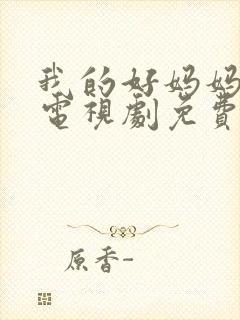 我的好妈妈
電視劇免費
原香-